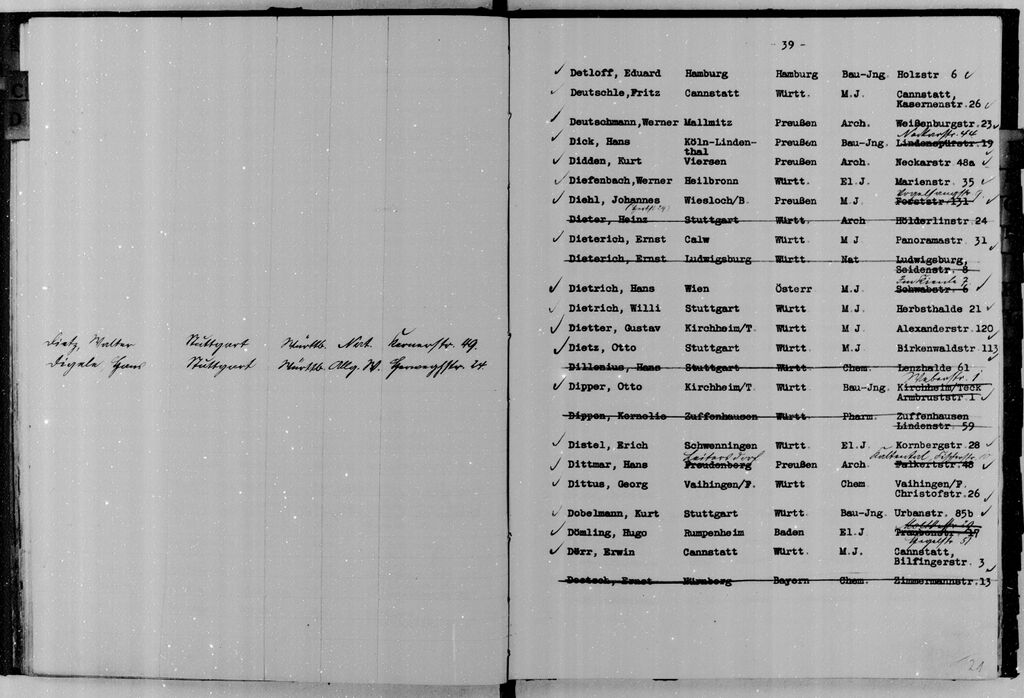 Dietz, Walter Stuttgart Württb. Nat. Kernerstr. 49.
Digele Hans Stuttgart Württb. Allg. W. Herweghstr. 24
- 39 -
Detloff, Eduard Hamburg Hamburg Bau-Jng. Holzstr 6
Deutschle,Fritz Cannstatt Württ. M.J. Cannstatt,
Kasernenstr.26
Deutschmann,Werner Mallmitz Preußen Arch. Weißenburgstr.23
Neckarstr. 44
Dick, Hans Köln-Linden- Preußen Bau-Jng. Lindenspürstr.19
thal
Didden, Kurt Viersen Preußen Arch. Neckarstr. 48a
Diefenbach,Werner Heilbronn Württ. El.J. Marienstr. 35
Vogelsangstr. 9.
Diehl, Johannes Wiesloch/B. Preußen M.J Forststr.131
Dieter, Heinz Stuttgart Württ. Arch Hölderlinstr.24
Dieterich, Ernst Calw Württ. M J Panoramastr. 31
Dieterich, Ernst Ludwigsburg Württ. Nat Ludwigsburg,
Seidenstr. 8
Dietrich, Hans Wien Österr M.J. Schwabstr. 6
Dietrich, Willi Stuttgart Württ M.J. Herbsthalde 21
Dietter, Gustav Kirchheim/T. Württ M.J Alexanderstr.120
Dietz, Otto Stuttgart Württ M.J. Birkenwaldstr.113
Dillenius, Hans Stuttgart Württ Chem. Lenzhalde 61
Weberstr. 1
Dipper, Otto Kirchheim/T. Württ Bau-Jng. Kirchheim/Teck
Armbruststr.1
Dippon, Kornelie Zuffenhausen Württ. Pharm. Zuffenhausen
Lindenstr. 59
Distel, Erich Schwenningen Württ. El.J. Kornbergstr.28
Kaltental
Dittmar, Hans Freudenberg Preußen Arch. Falkertstr.48
Dittus, Georg Vaihingen/F. Württ Chem Vaihingen/F.
Christofstr.26
Dobelmann, Kurt Stuttgart Württ. Bau-Jng. Urbanstr. 85b
Dömling, Hugo Rumpenheim Baden El.J Traubenstr 17
Dörr, Erwin Cannstatt Württ. M.J. Cannstatt,
Bilfingerstr. 3
Doetsch, Ernst Nürnberg Bayern Chem. Zimmermannstr.13
21